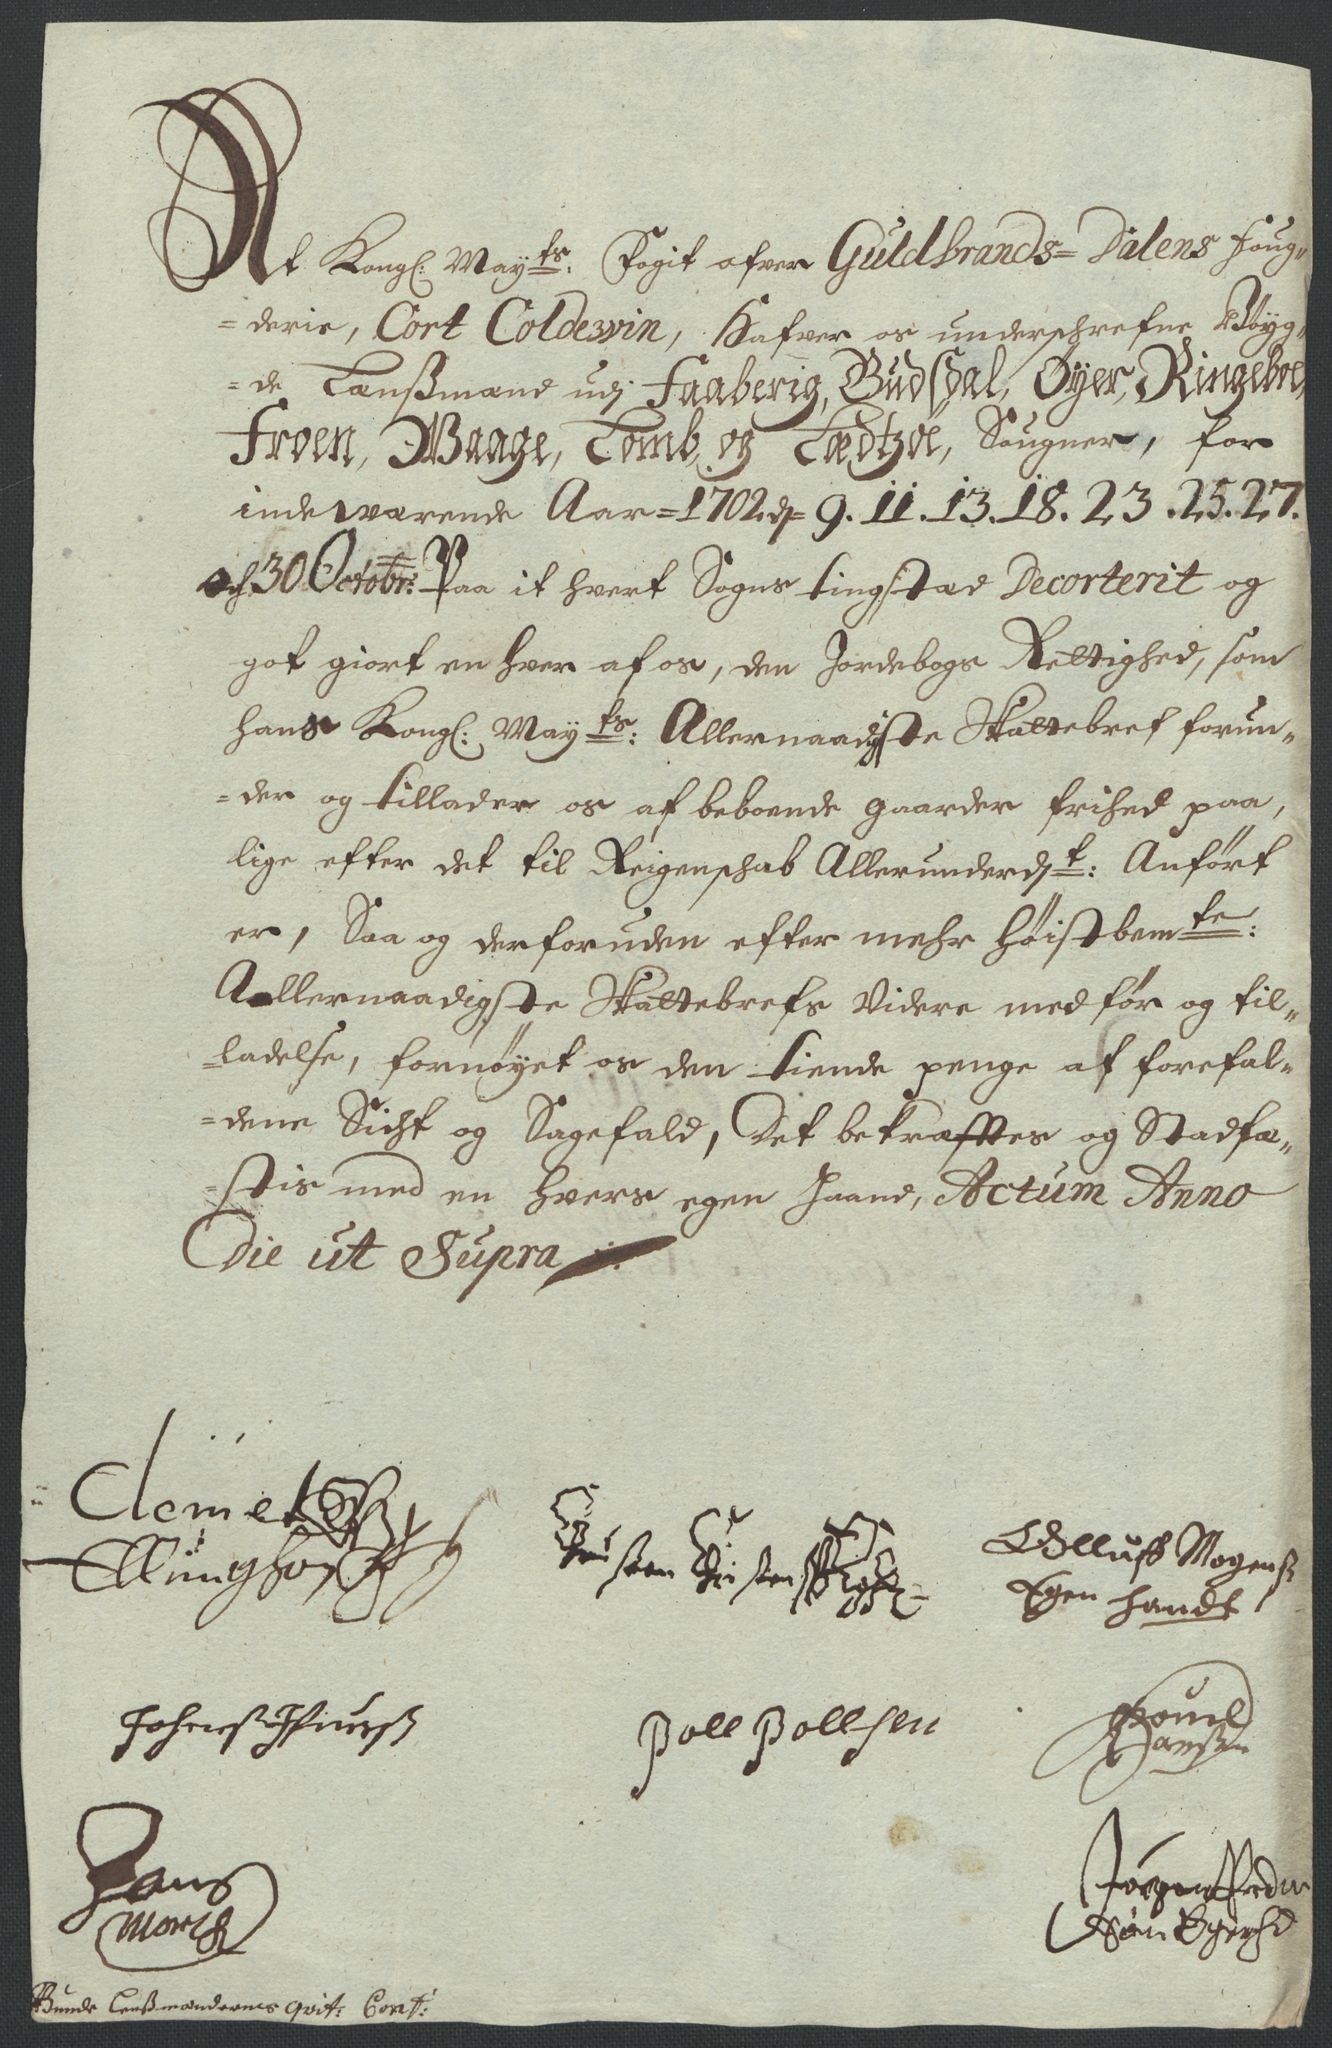 At Kongl: May:ts: Fogit ofver Guldbrands= Dalens Foug„
=derie, Cort Coldewin, Hafver os underschrefne Bøyg„
=de Lanßmænd udj Faaberig, Gudsdal, Øyer, Ringeboe,
Froen, Waage, Lomb, og Lædtzøe, Sougner, for
indeværende Aar=1702. d= 9. 11. 13. 18. 23. 25. 27.
och 30 Octobr: Paa it hvert Sogns tingstæd Decorterit og
got giort en hver af os, den Jordebogs Rettighed, som
hans Kongl: May:ts: Allernaadigste Skattebref forun„
=der og tillader os af beboende gaarder frihed paa,
lige efter det til Reigenschab Allerunderd:t: Anført
er, Saa og derforuden efter mehr høistbem:te:
Allernaadigste Skattebrefs Videre medfør og til„
=ladelse, fornøyet os den tiende penge af forefal„
=dene Sicht og Sagefald, Det bekræfftes og Stadfæ„
=stis med en hvers egen Haand, Actum Anno
Die ut Supra
Clemet
Christen Christens
Olluff Mogenß
Egen handt
Johanß
Poll Pollsen
Poull
Hanßen
Hans
Morth
Jørgen
Bunde Lenßmændernes qvit: Cont: